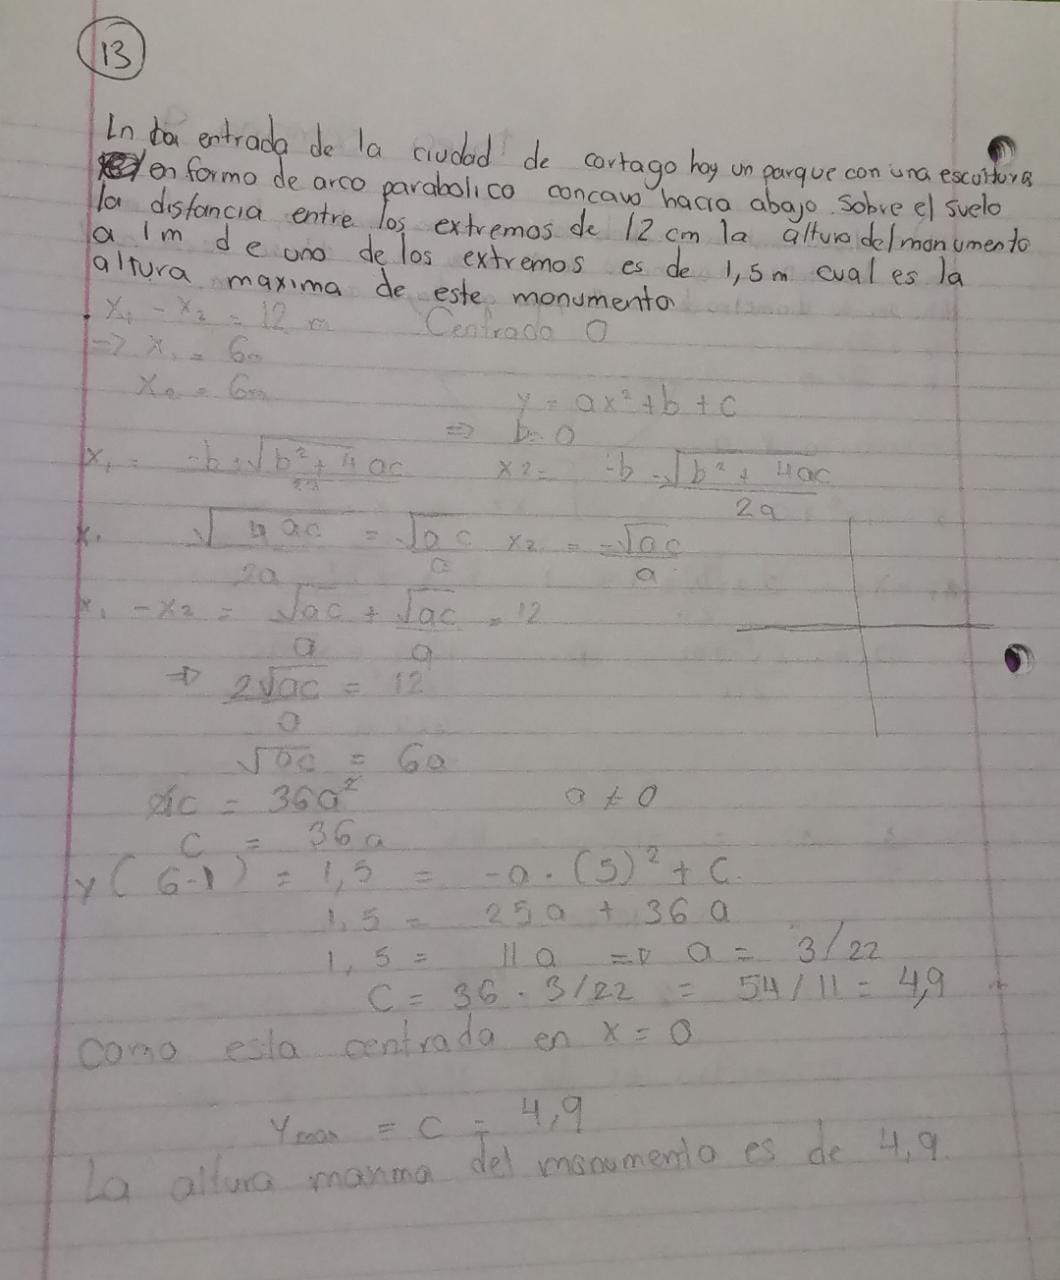 13
In la entrada de la ciudad de cartago hay un parque con una escultura
en forma de arco parabolico concavo hacia abajo. Sobre el suelo
la distancia entre los extremos de 12 cm la altura del monumento
a 1m de uno de los extremos es de 1,5m cual es la
altura maxima de este monumento
x₁ - x₂ = 12 m Centrado 0
=> x₁ = 6m
x₂ = 6m
y = ax² + b + c
=> b = 0
x₁ = -b + √(b² + 4ac) / 2a x2 = -b - √(b² + 4ac) / 2a
x₁ √(4ac) / 2a = √(ac) / a x2 = -√(ac) / a
x₁ - x2 = √(ac) / a + √(ac) / a = 12
=> 2√(ac) / a = 12
√(ac) = 6a
ac = 36a² a ≠ 0
c = 36a
y(6-1) = 1,5 = -a · (5)² + c.
1,5 = 25a + 36a
1,5 = 11a => a = 3/22
C = 36 · 3/22 = 54/11 = 4,9
Como esta centrada en x = 0
Ymax = c = 4,9
La altura maxima del monumento es de 4,9.